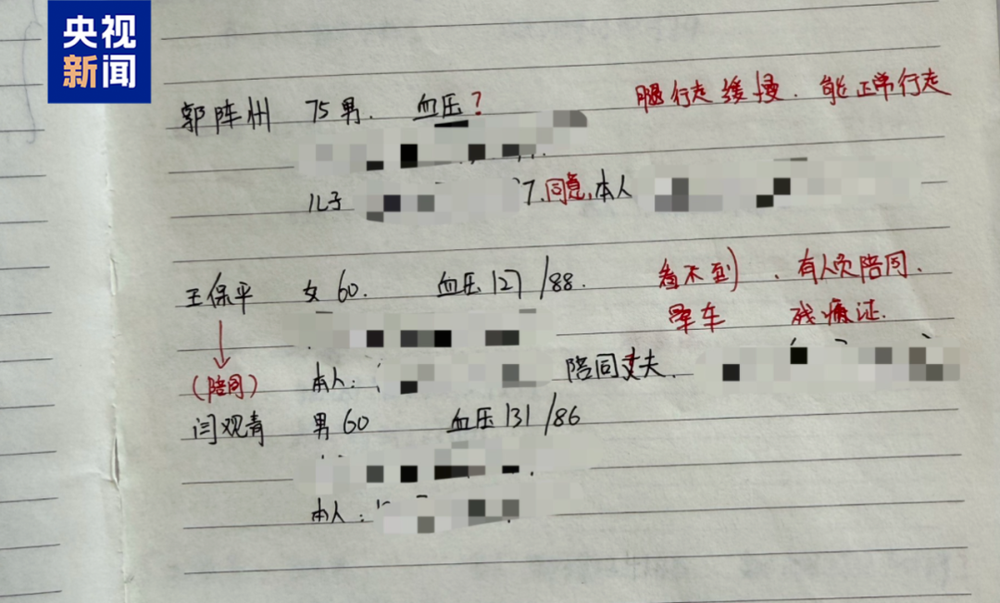 央视
新闻
郭阵州 75男. 血压? 腿行走缓慢. 能正常行走
儿子 7.同意,本人
王保平 女60. 血压127/88. 看不到, 有人员陪同.
晕车 残疾证.
(陪同) 本人: 陪同丈夫.
闫观青 男60 血压131/86
本人: